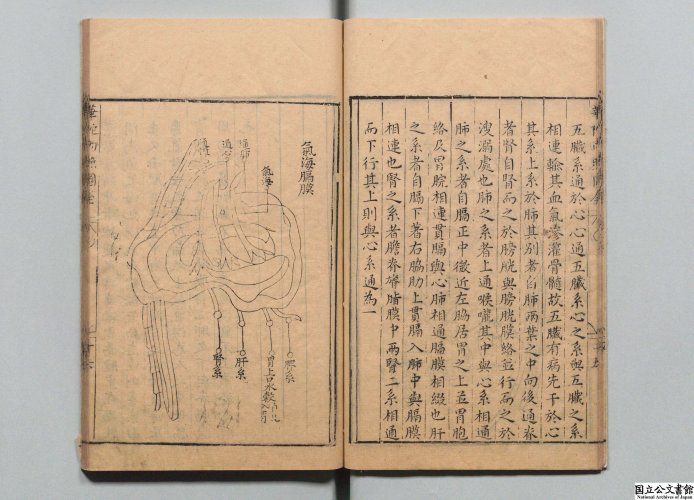 五臟系通於心心通五臟系心之系與五臟之系
相連輸其血氣滲灌骨髓故五臟有病先干於心
其系上系於肺其別者自肺兩葉之中向後通脊
者腎自腎而之於膀胱與膀胱膜絡並行而之於
溲溺處也肺之系者上通喉嚨其中與心系相通
肺之系者自膈正中微近左脇居胃之上並胃胞
絡及胃脘相連貫膈與心肺相通膈膜相綴也肝
之系者自膈下著右脇肋上貫膈入肺中與膈膜
相連也腎之系者膽脊膂脂膜中兩腎二系相通
而下行其上則與心系通為一
氣海膈膜
通肺
通心
氣海
腎系
肝系
胃上口水穀
脾系
国立公文書館
National Archives of Japan